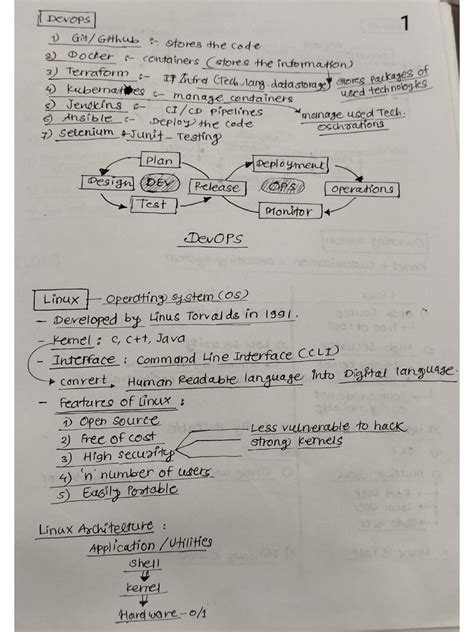 DEVOPS
1
1) Git/GitHub :- stores the code
2) Docker :- containers (stores the information)
3) Terraform :- IT Infra (Tech, lang, data storage) stores packages of used technologies
4) Kubernetes :- manage containers
5) Jenkins :- CI/CD pipelines manage used Tech.
6) Ansible :- Deploy the code
7) Selenium & Junit - Testing
Plan
Deployment
Design DEV Release OPS Operations
Test
Monitor
DevOPS
Linux - Operating system (OS)
- Developed by Linus Torvalds in 1991.
- Kernel : C, C++, Java
- Interface : Command Line Interface (CLI)
convert Human Readable language into Digital language.
- Features of Linux :
1) Open source
2) Free of cost
3) High security
Less vulnerable to hack
strong kernels
4) 'n' number of users
5) Easily Portable
Linux Architecture :
Application / Utilities
Shell
Kernel
Hardware - 0/1